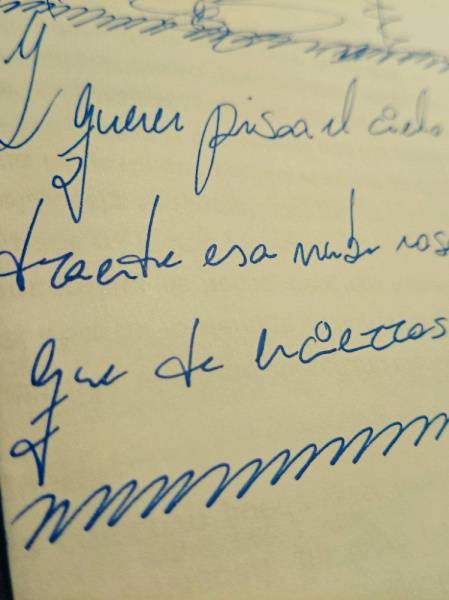 Y querer pisar el cielo
traerte esa nube rosa
que te